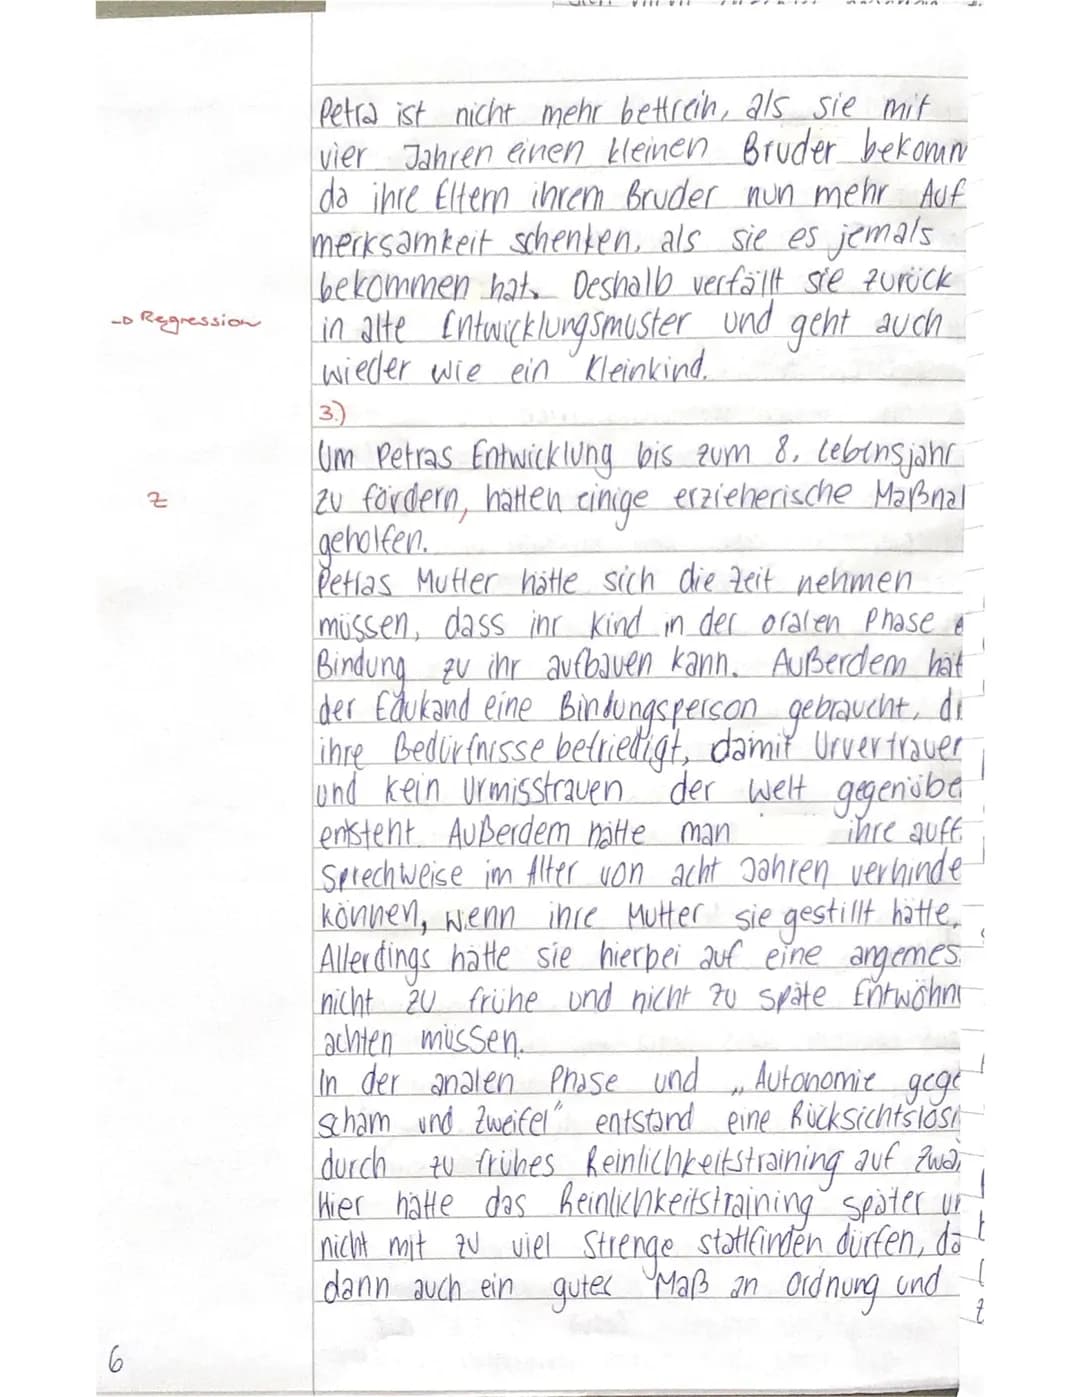 Petra ist nicht mehr bettrein, als sie mit
vier Jahren einen kleinen Bruder bekomm
da ihre Eltern ihrem Bruder nun mehr Auf
merksamkeit schenken, als sie es jemals
bekommen hat. Deshalb verfällt sie zurück
-> Regression in alte Entwicklungsmuster und geht auch
wieder wie ein Kleinkind.
3.)
Um Petras Entwicklung bis zum 8. Lebensjahr
Z zu fördern, hätten einige erzieherische Maßnah
geholfen.
Petras Mutter hätte sich die Zeit nehmen
müssen, dass ihr Kind in der oralen Phase e
Bindung zu ihr aufbauen kann. Außerdem hät
der Edukand eine Bindungsperson gebraucht, di
ihre Bedürfnisse befriedigt, damit Urvertrauen
und kein Urmisstrauen der Welt gegenübe
entsteht. Außerdem hätte man ihre auff
Sprechweise im Alter von acht Jahren verhinde
können, wenn ihre Mutter sie gestillt hätte.
Allerdings hätte sie hierbei auf eine angemes
nicht zu frühe und nicht zu späte Entwöhn
achten müssen.
In der analen Phase und „Autonomie gege
Scham und Zweifel" entstand eine Rücksichtslosi
durch zu frühes Reinlichkeitstraining auf Zwa
Hier hätte das Reinlichkeitstraining später un
nicht mit zu viel Strenge stattfinden dürfen, da
dann auch ein gutes Maß an Ordnung und
6